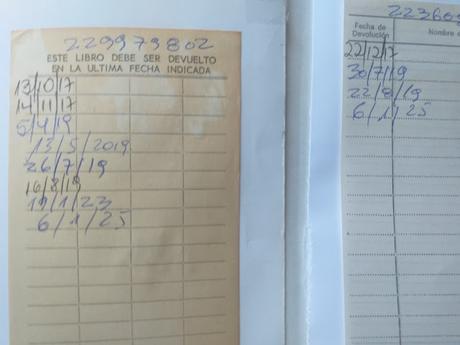 229979802
ESTE LIBRO DEBE SER DEVUELTO
EN LA ULTIMA FECHA INDICADA
13/10/17
14/11/17
5/4/19
13/5/2019
26/7/19
16/8/19
19/1/23
6/1/25
Fecha de
Devolución
Nombre
22/12/17
30/7/19
22/8/19
6/1/25